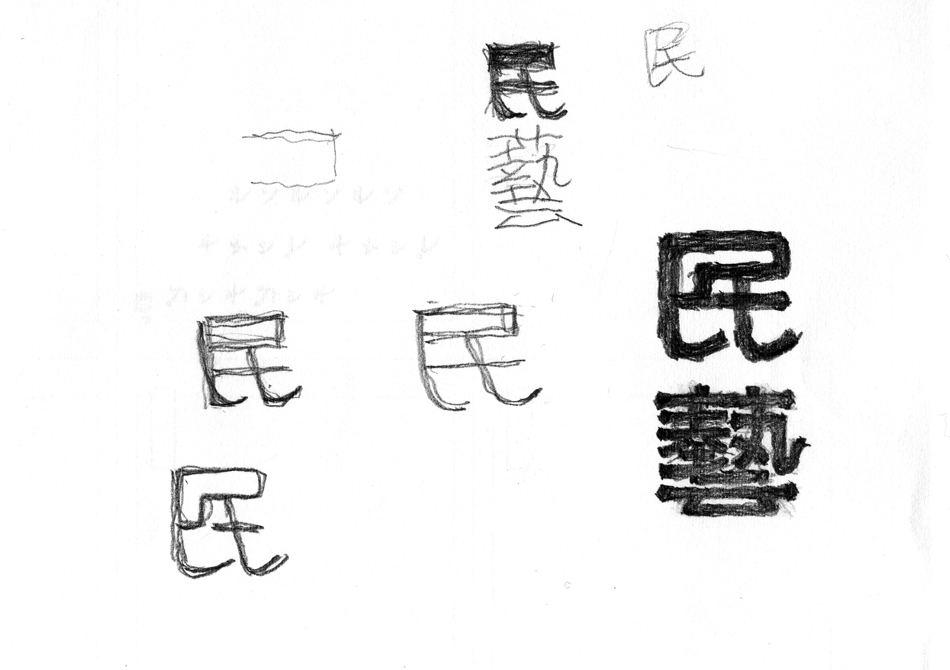 民藝
民
民藝
民
民
民